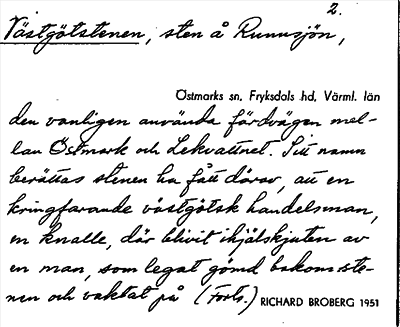 2.
Västgötstenen, sten å Runnsjön,
Östmarks sn, Fryksdals hd, Värml. län
den vanligen använda färdvägen mel-
lan Östmark och Lekvattnet. Sitt namn
berättas stenen ha fått därav, att en
kringfarande västgötsk handelsman,
en knalle, där blivit ihjälskjuten av
en man, som legat gömd bakom ste-
nen och vaktat på (Forts.) RICHARD BROBERG 1951